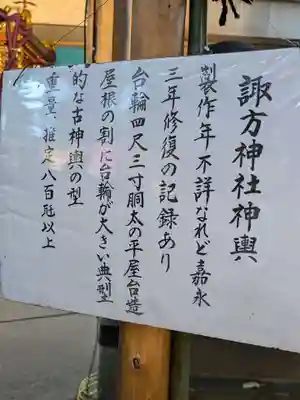 諏方神社神輿
製作年不詳なれど嘉永
三年修復の記録あり
台輪四尺三寸胴太の平屋台造
屋根の割に台輪が大きい典型
的な古神輿の型
重量、推定八百瓩以上